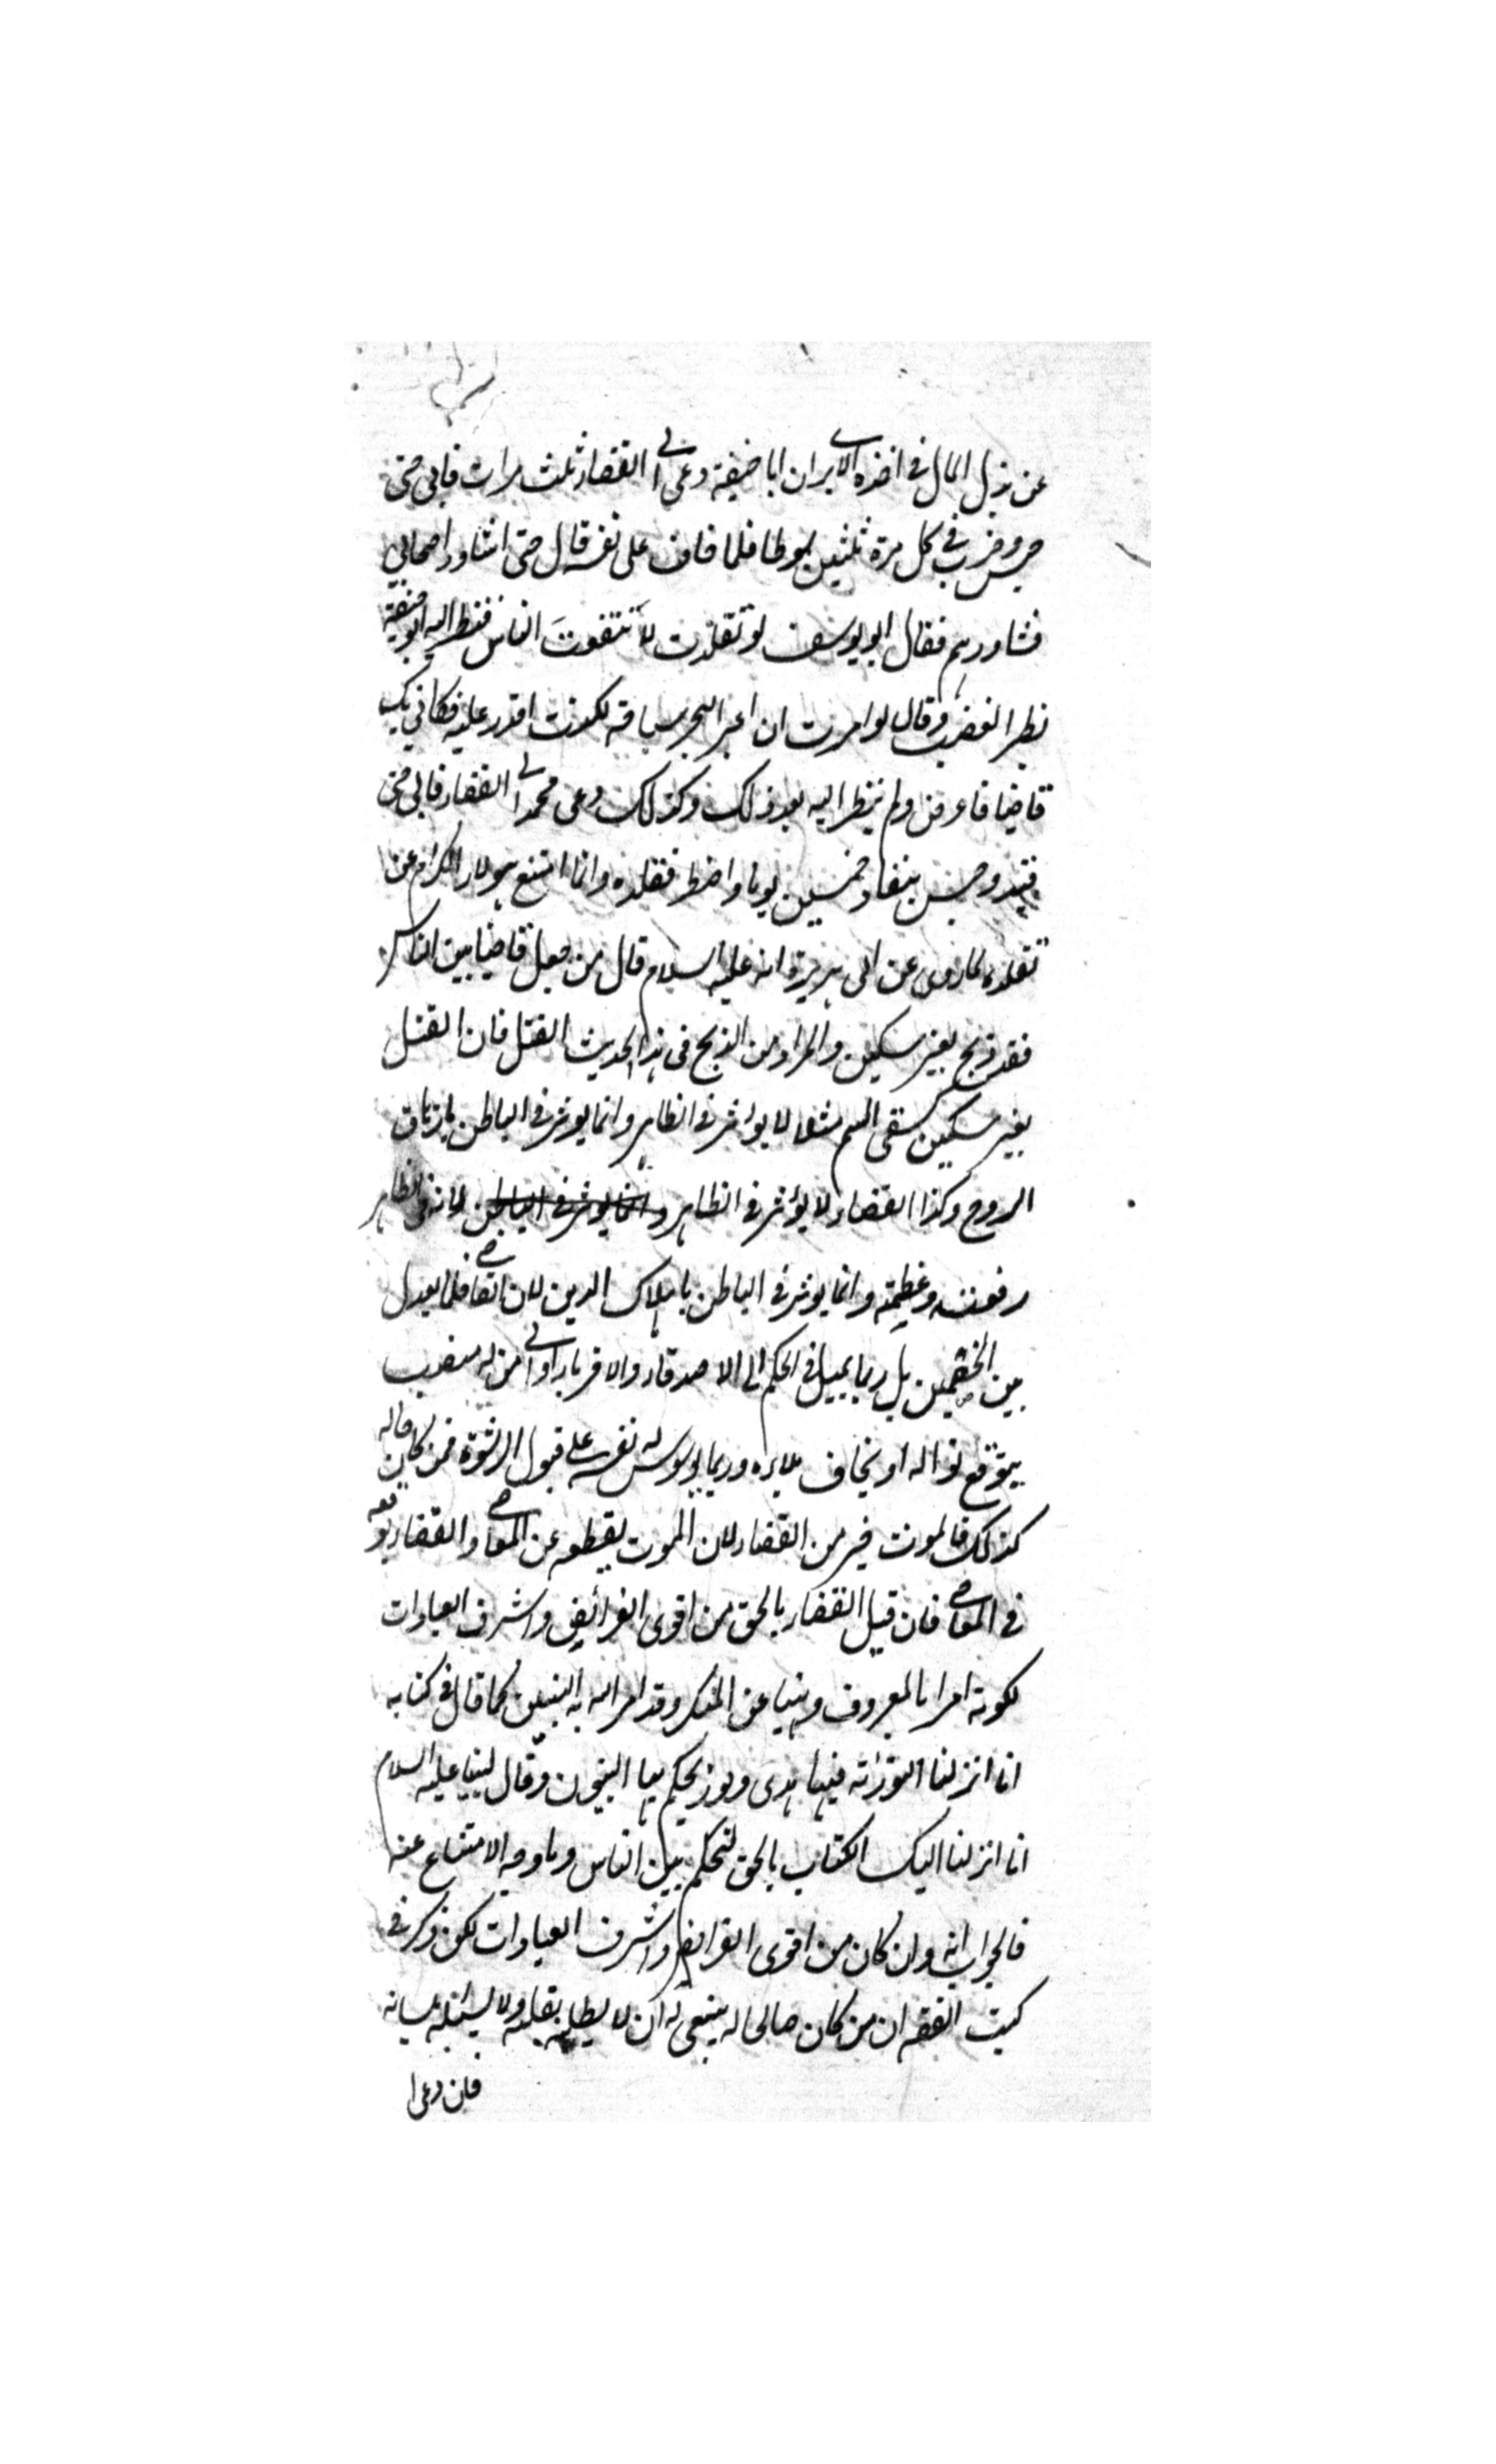 عن بذل المال في اخذه الا يرى ان ابا حنيفة دعى الى القضاء ثلث مرات فابى حتى
حبس وضرب في كل مرة ثلثين سوطا فلما خاف على نفسه قال حتى استشاور اصحابي
فشاورهم فقال ابو يوسف لو تقلدت لأنتفعتَ الناس فنظر اليه ابو حنيفة
نظر الغضب وقال لو امرت ان اعبر البحر سباحة لكنت اقدر عليه فكاني بك
قاضيا فاعرض ولم ينظر اليه بعد ذلك وكذلك دعى محمد الى القضاء فابى حتى
قيد وحبس نيفا وخمسين يوما واضطر فقلده وانما امتنع هؤلاء الكرام عن
تقلده لما روى عن ابى هريرة انه عليه السلام قال من جعل قاضيا بين الناس
فقد ذبح بغير سكين والمراد من الذبح فى هذا الحديث القتل فان القتل
بغير سكين كسقى السم مثلا لا يؤثر فى الظاهر وانما يوثر فى الباطن بازهاق
الروح وكذا القضاء لا يؤثر فى الظاهر وانما يوثر فى الباطن لانه فى الظاهر
رفعة وعظمة وانما يوثر فى الباطن باهلاك الدين لان القاضي قلما يعدل
بين الخصمين بل ربما يميل فى الحكم الى الاصدقاء والاقرباء او الى من له منصب
يتوقع نواله او يخاف بلاءه وربما يوسوس له نفسه على قبول الرشوة فمن كان حاله
كذلك فالموت خير من القضاء لان الموت يقطعه عن المعاصي والقضاء يوقعه
فى المعاصي فان قيل القضاء بالحق من اقوى الفرائض واشرف العبادات
لكونه امرا بالمعروف ونهيا عن المنكر وقد امر الله به النبيين كما قال فى كتابه
انا انزلنا التورٰته فيها هدى ونور يحكم بها النبيون وقال لنبينا عليه السلام
انا انزلنا اليك الكتاب بالحق لتحكم بين الناس وما وجه الامتناع عنه
فالجواب انه وان كان من اقوى الفرائض واشرف العبادات لكن ذكر فى
كتب الفقه ان من كان صالحا له ينبغى له ان لا يطلبه بقلبه ولا يسئله بلسانه
فان دعى ا